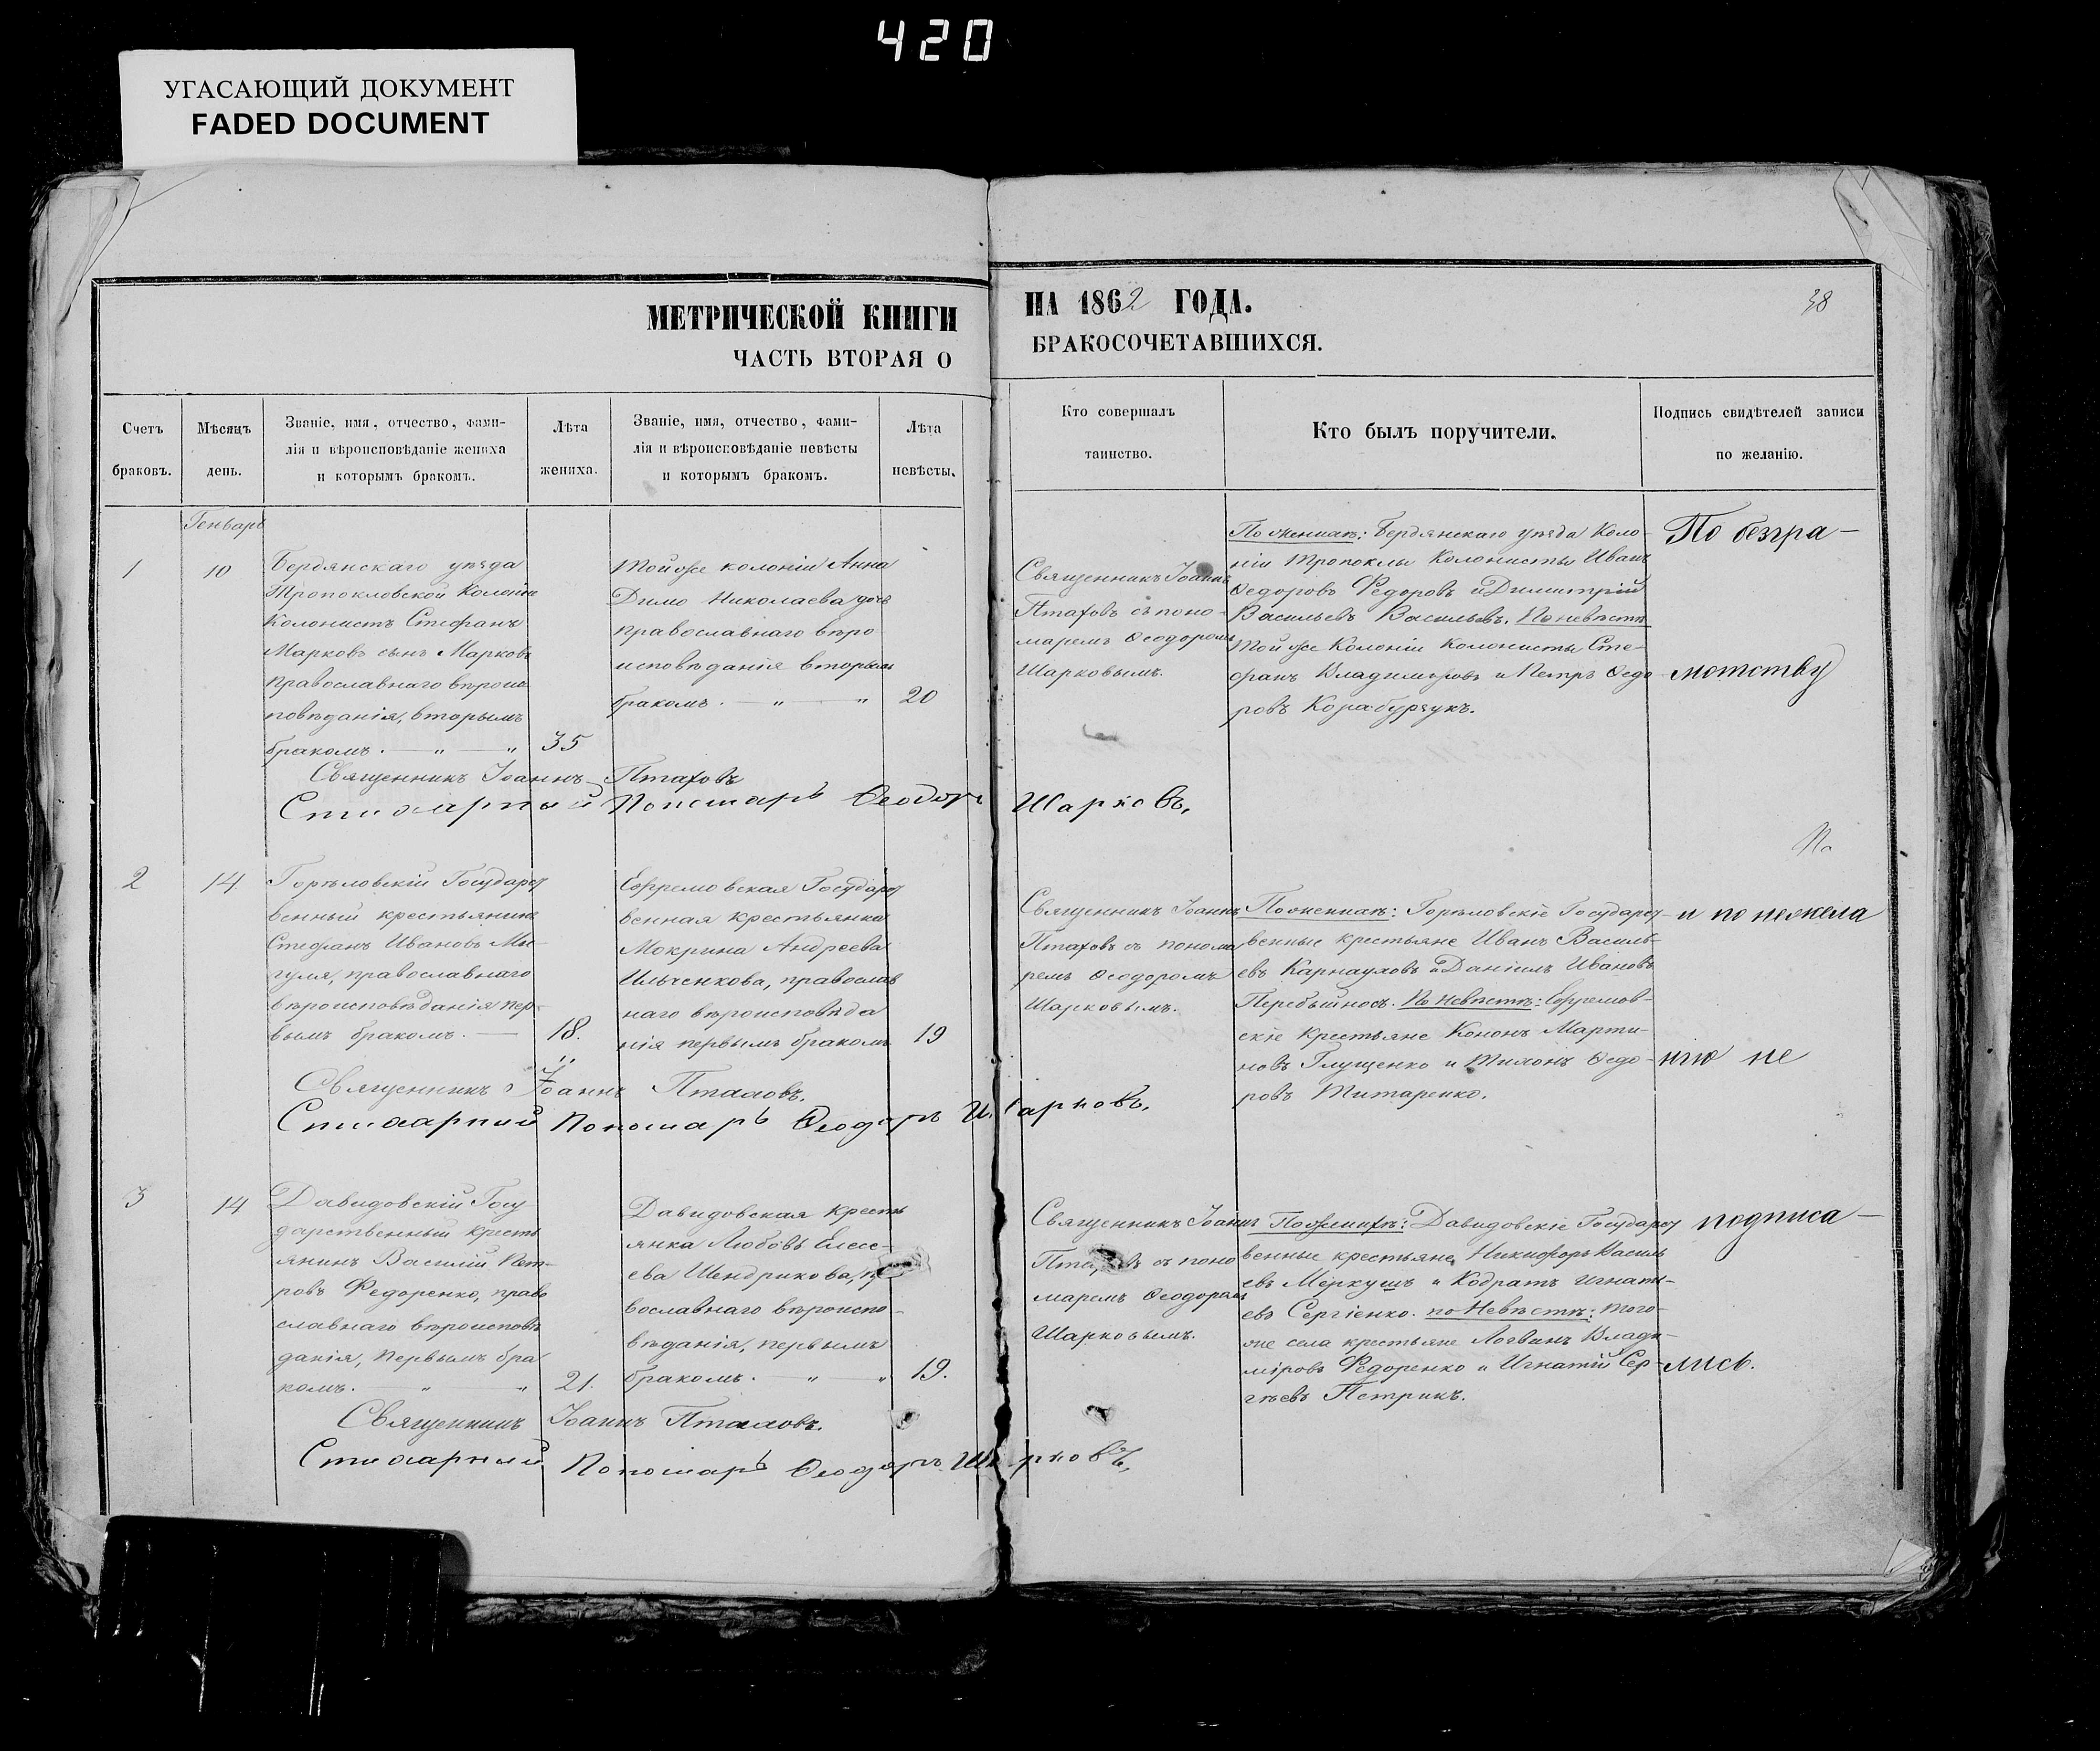 420
УГАСАЮЩИЙ ДОКУМЕНТ
FADED DOCUMENT
МЕТРИЧЕСКОЙ КНИГИ
ЧАСТЬ ВТОРАЯ О
НА 1862 ГОДА.
38
БРАКОСОЧЕТАВШИХСЯ.
Счетъ
браковъ.
Мѣсяцъ
день.
Званіе, имя, отчество, фами-
лія и вѣроисповѣданіе жениха
и которымъ бракомъ.
Лѣта
жениха.
Званіе, имя, отчество, фами-
лія и вѣроисповѣданіе невѣсты
и которымъ бракомъ.
Лѣта
невѣсты.
Кто совершалъ
таинство.
Кто былъ поручители.
Подпись свидѣтелей записи
по желанію.
Генварь
1
10
Бердянскаго уѣзда
Тропокловской Колоніи
Колонистъ Стефанъ
Марковъ сынъ Марковъ
православнаго вѣроис
повѣданія, вторымъ
бракомъ. — „ — „
35
Тойже колоніи Анна
Димо Николаева дочь
православнаго вѣро
исповѣданія вторымъ
бракомъ. — „ — „
20
Священникъ Іоаннъ
Птаховъ съ поно-
маремъ Ѳеодоромъ
Шарковымъ.
По женихѣ: Бердянскаго уѣзда Коло-
ніи Тропоклы Колонисты Иванъ
Ѳедоровъ Федоровъ и Димитрій
Васильевъ Васильевъ. По невѣстѣ
той же Колоніи Колонисты Сте-
фанъ Владимировъ и Петръ Ѳедо
ровъ Корабурчукъ.
По безгра-
мотству
Священникъ Іоаннъ Птаховъ
Стихарный Пономарь Ѳеодоръ Шарковъ.
2
14
Горѣловскій Государст
венный крестьянинъ
Стефанъ Ивановъ Ми-
гуля, православнаго
вѣроисповѣданія пер-
вымъ бракомъ. —
18.
Ефремовская Государст
венная крестьянка
Мокрина Андреева
Ильченкова, православ
наго вѣроисповѣда
нія первымъ бракомъ
19
Священникъ Іоаннъ
Птаховъ съ понома
ремъ Ѳеодоромъ
Шарковымъ.
По женихѣ: Горѣловскіе Государст-
венные крестьяне Иванъ Василь-
евъ Карнауховъ и Даніилъ Ивановъ
Перебыйносъ. По невѣстѣ: Ефремов-
скіе крестьяне Кононъ Марти-
новъ Глущенко и Тихонъ Ѳедо-
ровъ Титаренко.
и по нежела
нію не
Священникъ Іоаннъ Птаховъ.
Стихарный Пономарь Ѳеодоръ Шарковъ.
3
14
Давидовскій Госу
дарственный кресть
янинъ Василій Пет-
ровъ Федоренко, право
славнаго вѣроисповѣ
данія, первымъ бра
комъ. „ „
21.
Давидовская кресть
янка Любовь Елесе-
ева Шендрикова, пра
вославнаго вѣроиспо-
вѣданія, первымъ
бракомъ. — „ — „
19.
Священникъ Іоаннъ
Птаховъ съ поно
маремъ Ѳеодоромъ
Шарковымъ.
По женихѣ: Давидовскіе Государст
венные крестьяне, Никифоръ Василь
евъ Меркушъ и Кодратъ Игнати-
евъ Сергіенко. по Невѣстѣ: того-
же села крестьяне Логвинъ Влади-
міровъ Федоренко и Игнатій Сер-
гѣевъ Петрикъ.
подписа-
лись.
Священникъ Іоаннъ Птаховъ.
Стихарный Пономарь Ѳеодоръ Шарковъ.